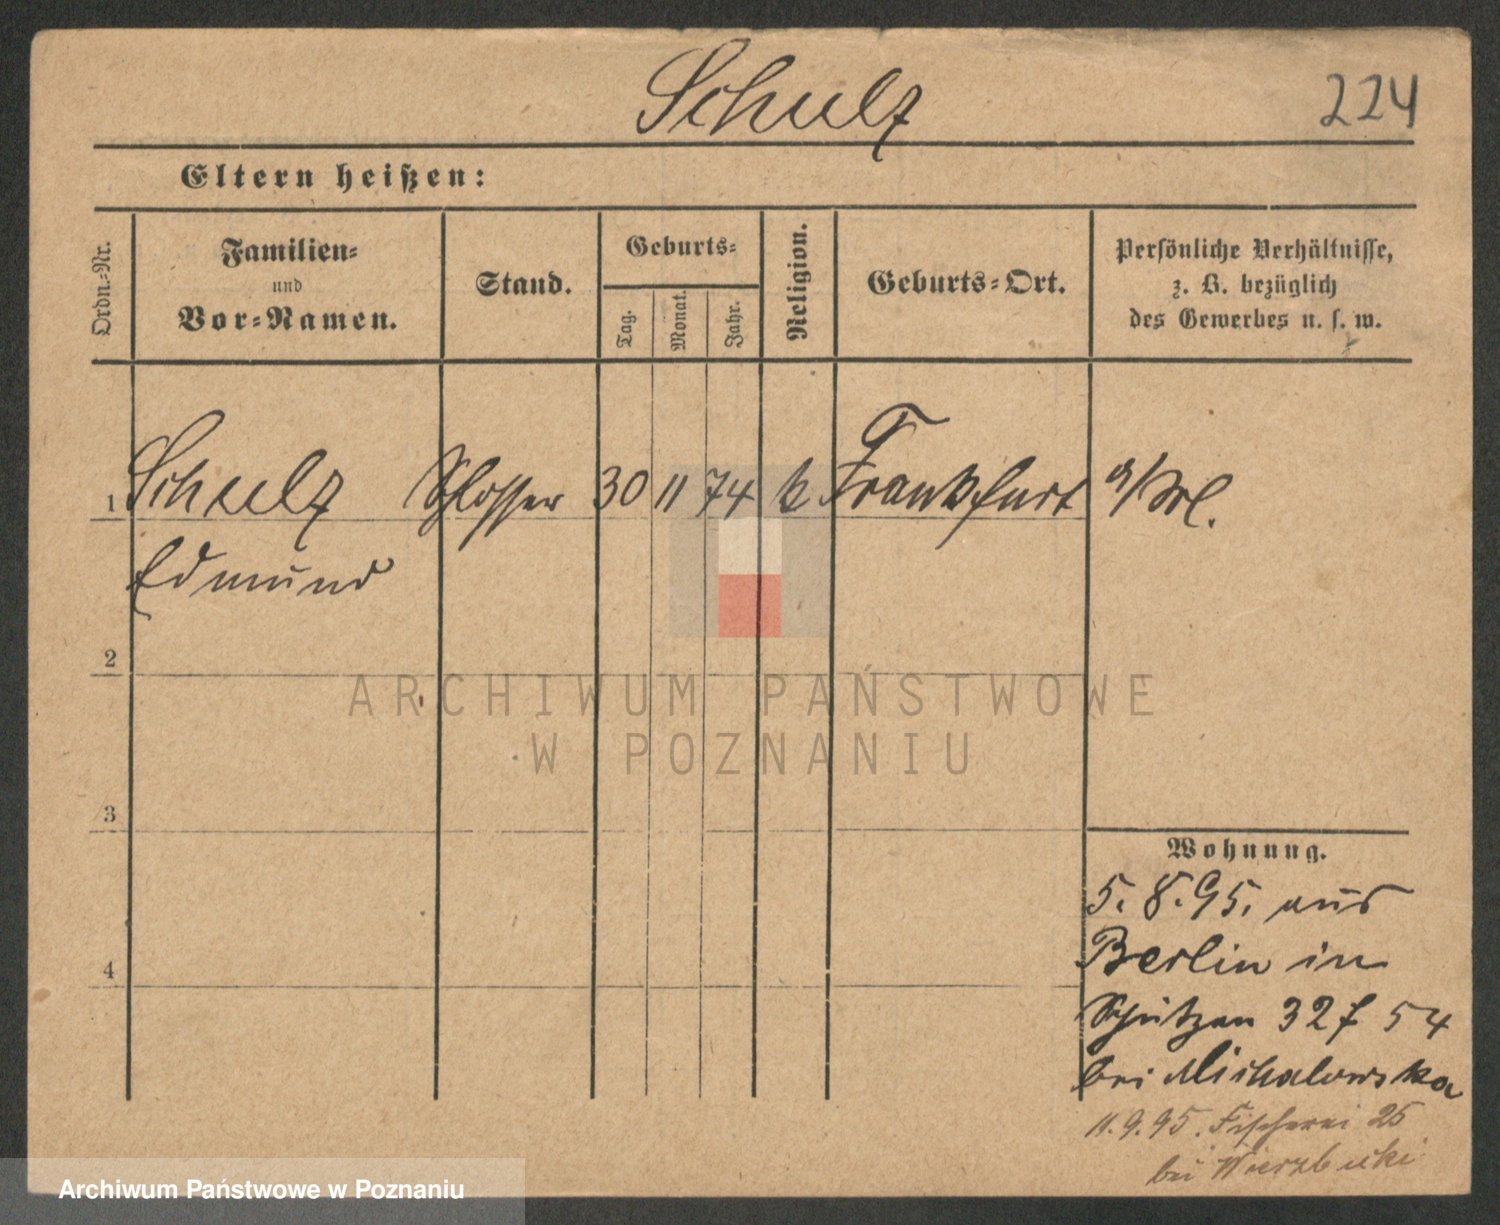 Schulz
224
Eltern heißen:
Ordn.-Nr.
Familien-
und
Vor-Namen.
Stand.
Geburts-
Tag.
Monat.
Jahr.
Religion.
Geburts-Ort.
Persönliche Verhältnisse,
z. B. bezüglich
des Gewerbes u. s. w.
1 Schulz Schlosser 30 11 74 k Frankfurt a/M.
Edmund
2
3
4
ARCHIWUM PAŃSTWOWE
W POZNANIU
Wohnung.
5. 8. 95. aus
Berlin in
Schützen 32 f 54
bei Michalowska
11. 9. 95. Fischerei 25
bei Wierzbicki
Archiwum Państwowe w Poznaniu